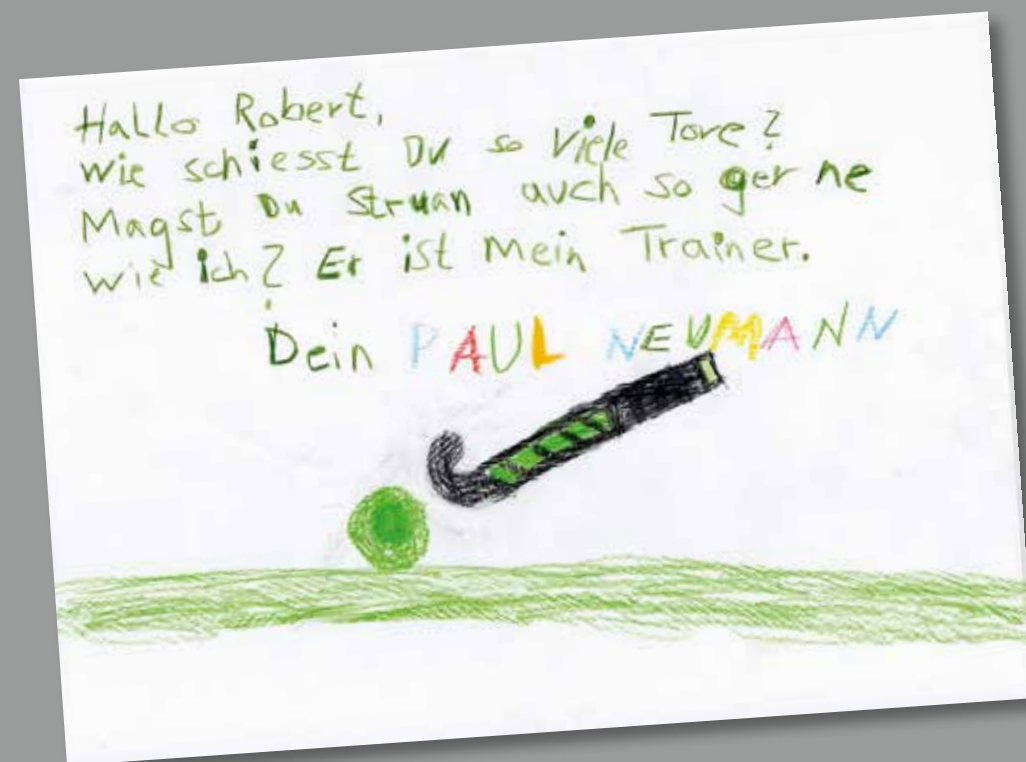 Hallo Robert,
wie schiesst Du so viele Tore?
Magst Du Struan auch so gerne
wie ich? Er ist mein Trainer.
Dein PAUL NEUMANN